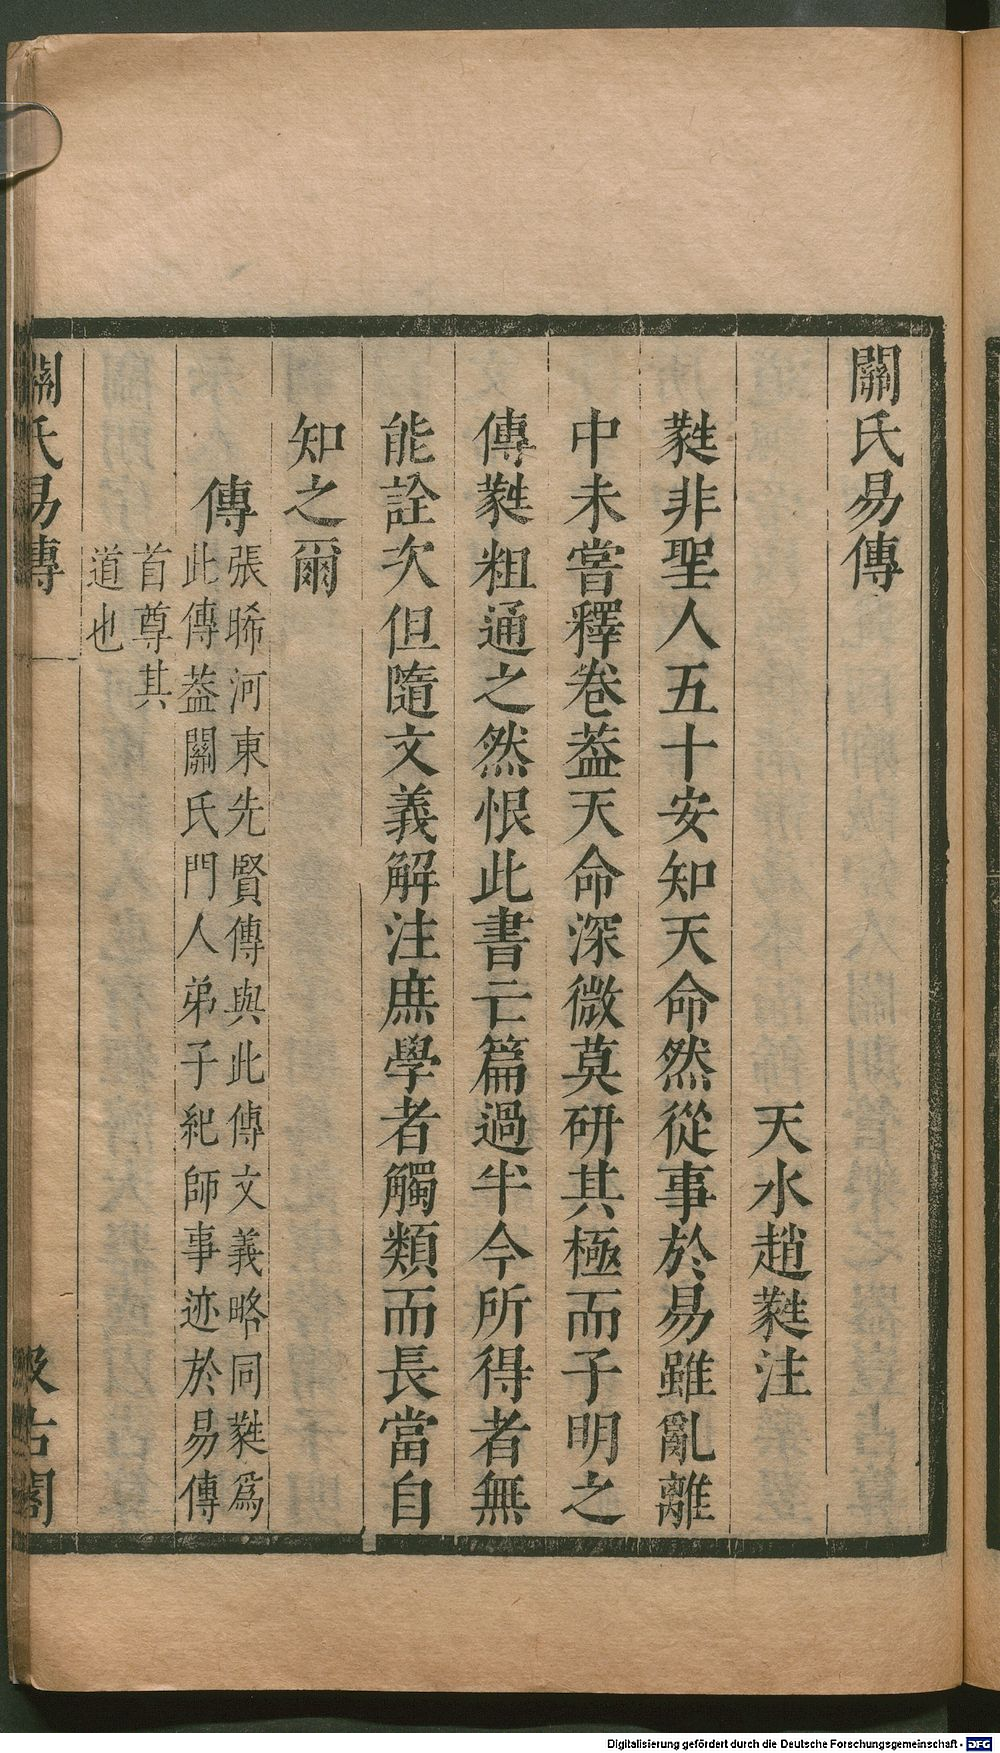 關氏易傳
天水趙蕤注
蕤非聖人五十安知天命然從事於易雖亂離
中未嘗釋卷葢天命深微莫硏其極而子明之
傳蕤粗通之然恨此書亡篇過半今所得者無
能詮次但隨文義解注庶學者觸類而長當自
知之爾
傳
張晞河東先賢傳與此傳文義略同蕤爲
此傳葢關氏門人弟子紀師事迹於易傳
首尊其
道也
關氏易傳
一
汲古閣
Digitalisierung gefördert durch die Deutsche Forschungsgemeinschaft - DFG